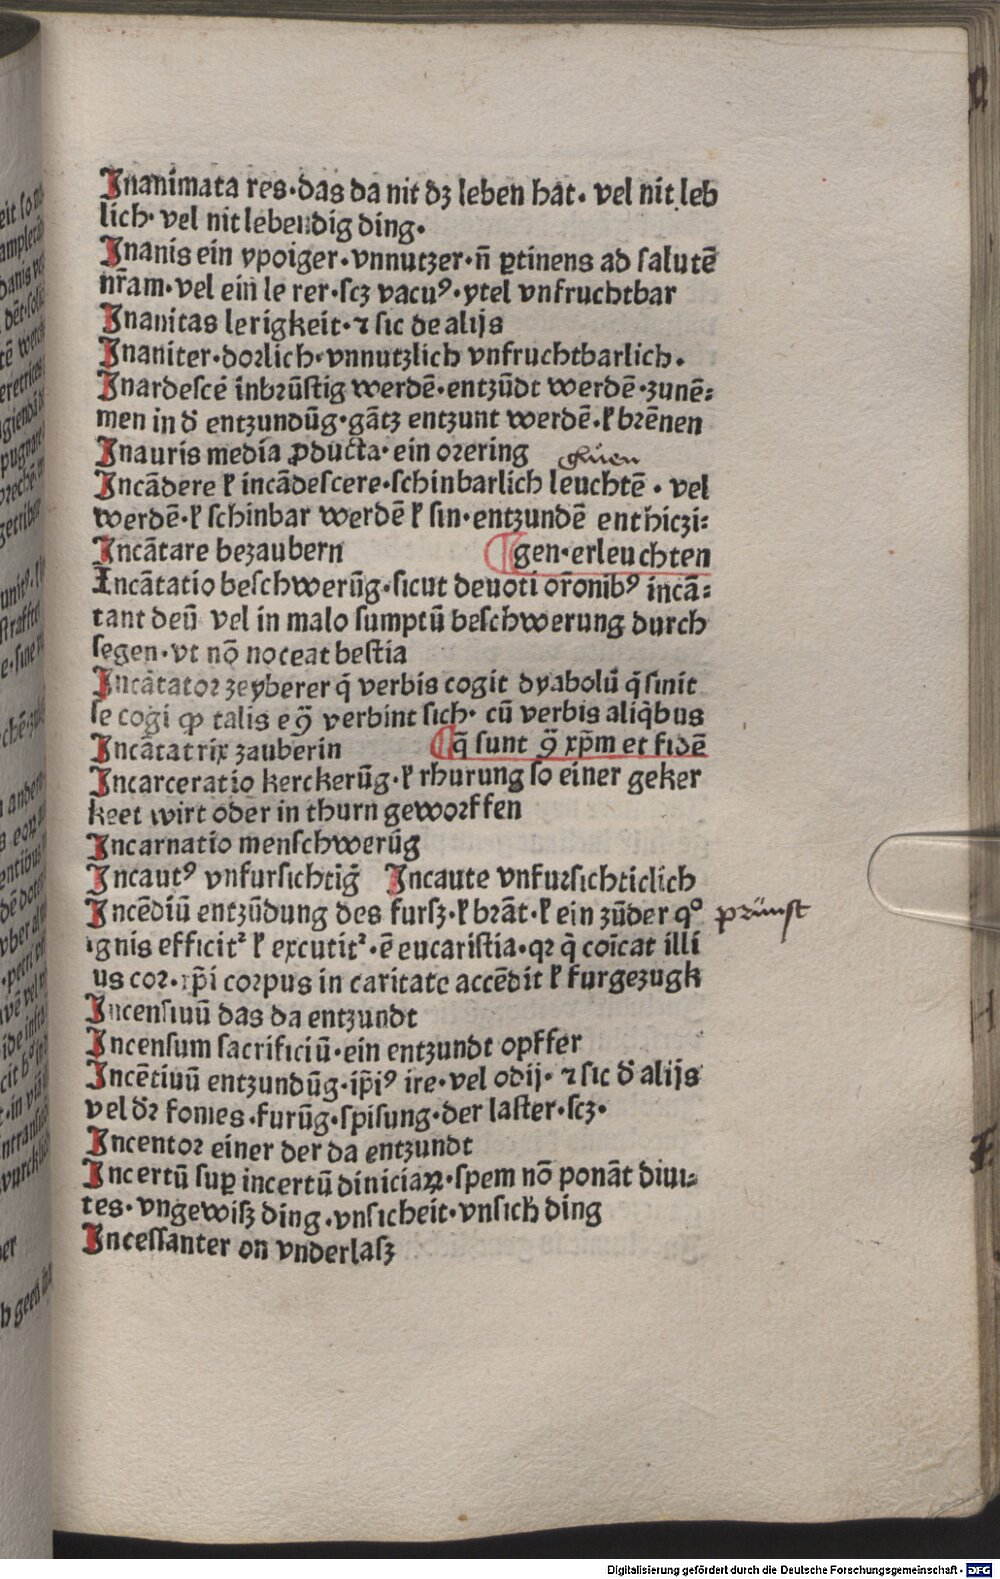 Inanimata res·das da nit dz leben hat· vel nit leb
lich· vel nit lebendig ding·
Inanis ein ypoiger·vnnutzer·n̄ ꝑtinens ad salutē
nr̄am·vel ein le rer·scz vacuꝰ·ytel vnfruchtbar
Inanitas lerigkeit·⁊ sic de alijs
Inaniter·dorlich·vnnutzlich vnfruchtbarlich·
Inardescē inbrūstig werdē·entzūdt werdē·zunē⸗
men in d̄ entzundūg·gātz entzunt werdē·ł brēnen
Inauris media ꝓducta·ein orering
glüen
Incādere ł incādescere·schinbarlich leuchtē· vel
werdē·ł schinbar werdē ł sin·entzundē enthiczi⸗
Incātare bezaubern ¶gen·erleuchten
Incātatio beschwerūg·sicut deuoti or̄onibꝰ incā⸗
tant deū vel in malo sumptū beschwerung durch
segen·vt nō noceat bestia
Incātator zeyberer q̄ verbis cogit dyabolū q̄ sinit
se cogi ꝙ talis e ꝯ̄ verbint sich· cū verbis aliq̄bus
Incātatrix zauberin ¶q̄ sunt ꝯ̄ xp̄m et fidē
Incarceratio kerckerūg·ł thurung so einer geker
keet wirt oder in thurn geworffen
Incarnatio menschwerūg
Incautꝰ vnfursichtiḡ Incaute vnfursichticlich
Incēdiū entzūdung des fursz·ł brāt·ł ein zūder qº prünst
ignis efficit² ł excutit²·ē eucaristia·qꝛ q̄ coīcat illi
us cor·xp̄i corpus in caritate accēdit ł furgezugk
Incensiuū das da entzundt
Incensum sacrificiū·ein entzundt opffer
Incētiuū entzundūg·ip̄iꝰ ire·vel odij·⁊ sic d̄ alijs
vel dr̄ fomes·furūg·spisung·der laster·scz·
Incentor einer der da entzundt
Incertū suꝑ incertū diniciaꝝ·spem nō ponāt diui⸗
tes·vngewisz ding·vnsicheit·vnsich̄ ding
Incessanter on vnderlasz
Digitalisierung gefördert durch die Deutsche Forschungsgemeinschaft - DFG